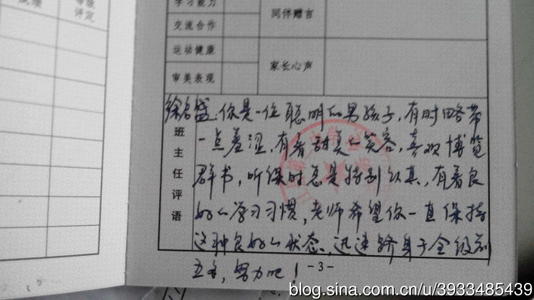 等级
评定
学习能力
交流合作
运动健康
审美表现
同伴赠言
家长心声
班主任评语
徐名盛,你是一位聪明的男孩子,有时略带
一点羞涩,有着甜美的笑容,喜欢博览
群书,听课时总是特别认真,有着良
好的学习习惯,老师希望你一直保持
这种良好的状态,迅速跻身于全级前
五名,努力吧!
-3-
blog.sina.com.cn/u/3933485439